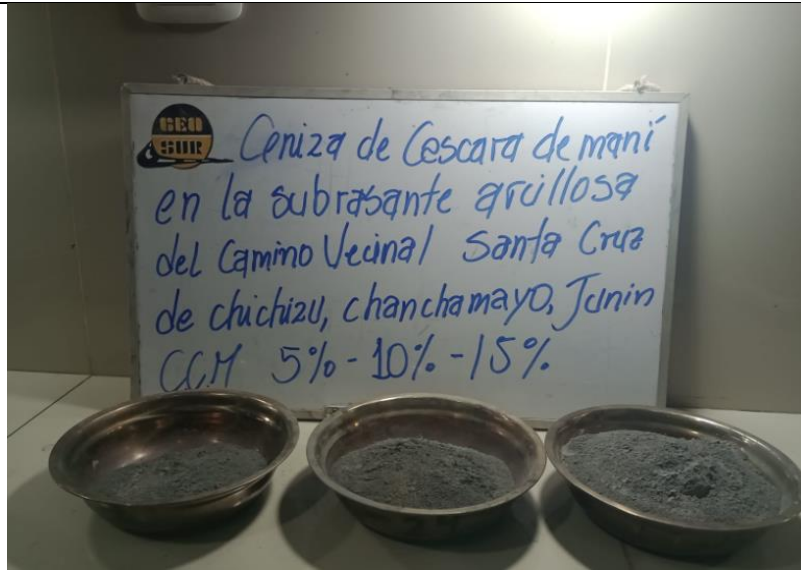 GEO
SUR
Ceniza de Cascara de maní
en la subrasante arcillosa
del Camino Vecinal Santa Cruz
de chichizu, chanchamayo, Junin
CCM 5% - 10% - 15%